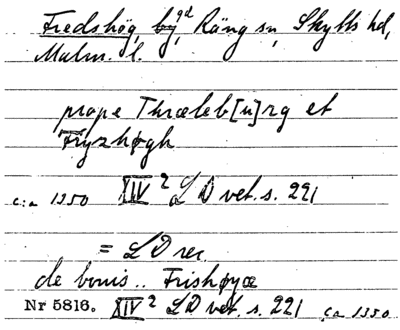 Fredshög, by, gd, Räng sn, Skytts hd,
Malm. l.
prope Thræleb[u]rg et
Fryzhøgh
c:a 1350 XIV² LD vet. s. 221
= LD rec.
de bonis .. Frishøyæ
Nr 5816. XIV² LD vet. s. 221 ca 1350.